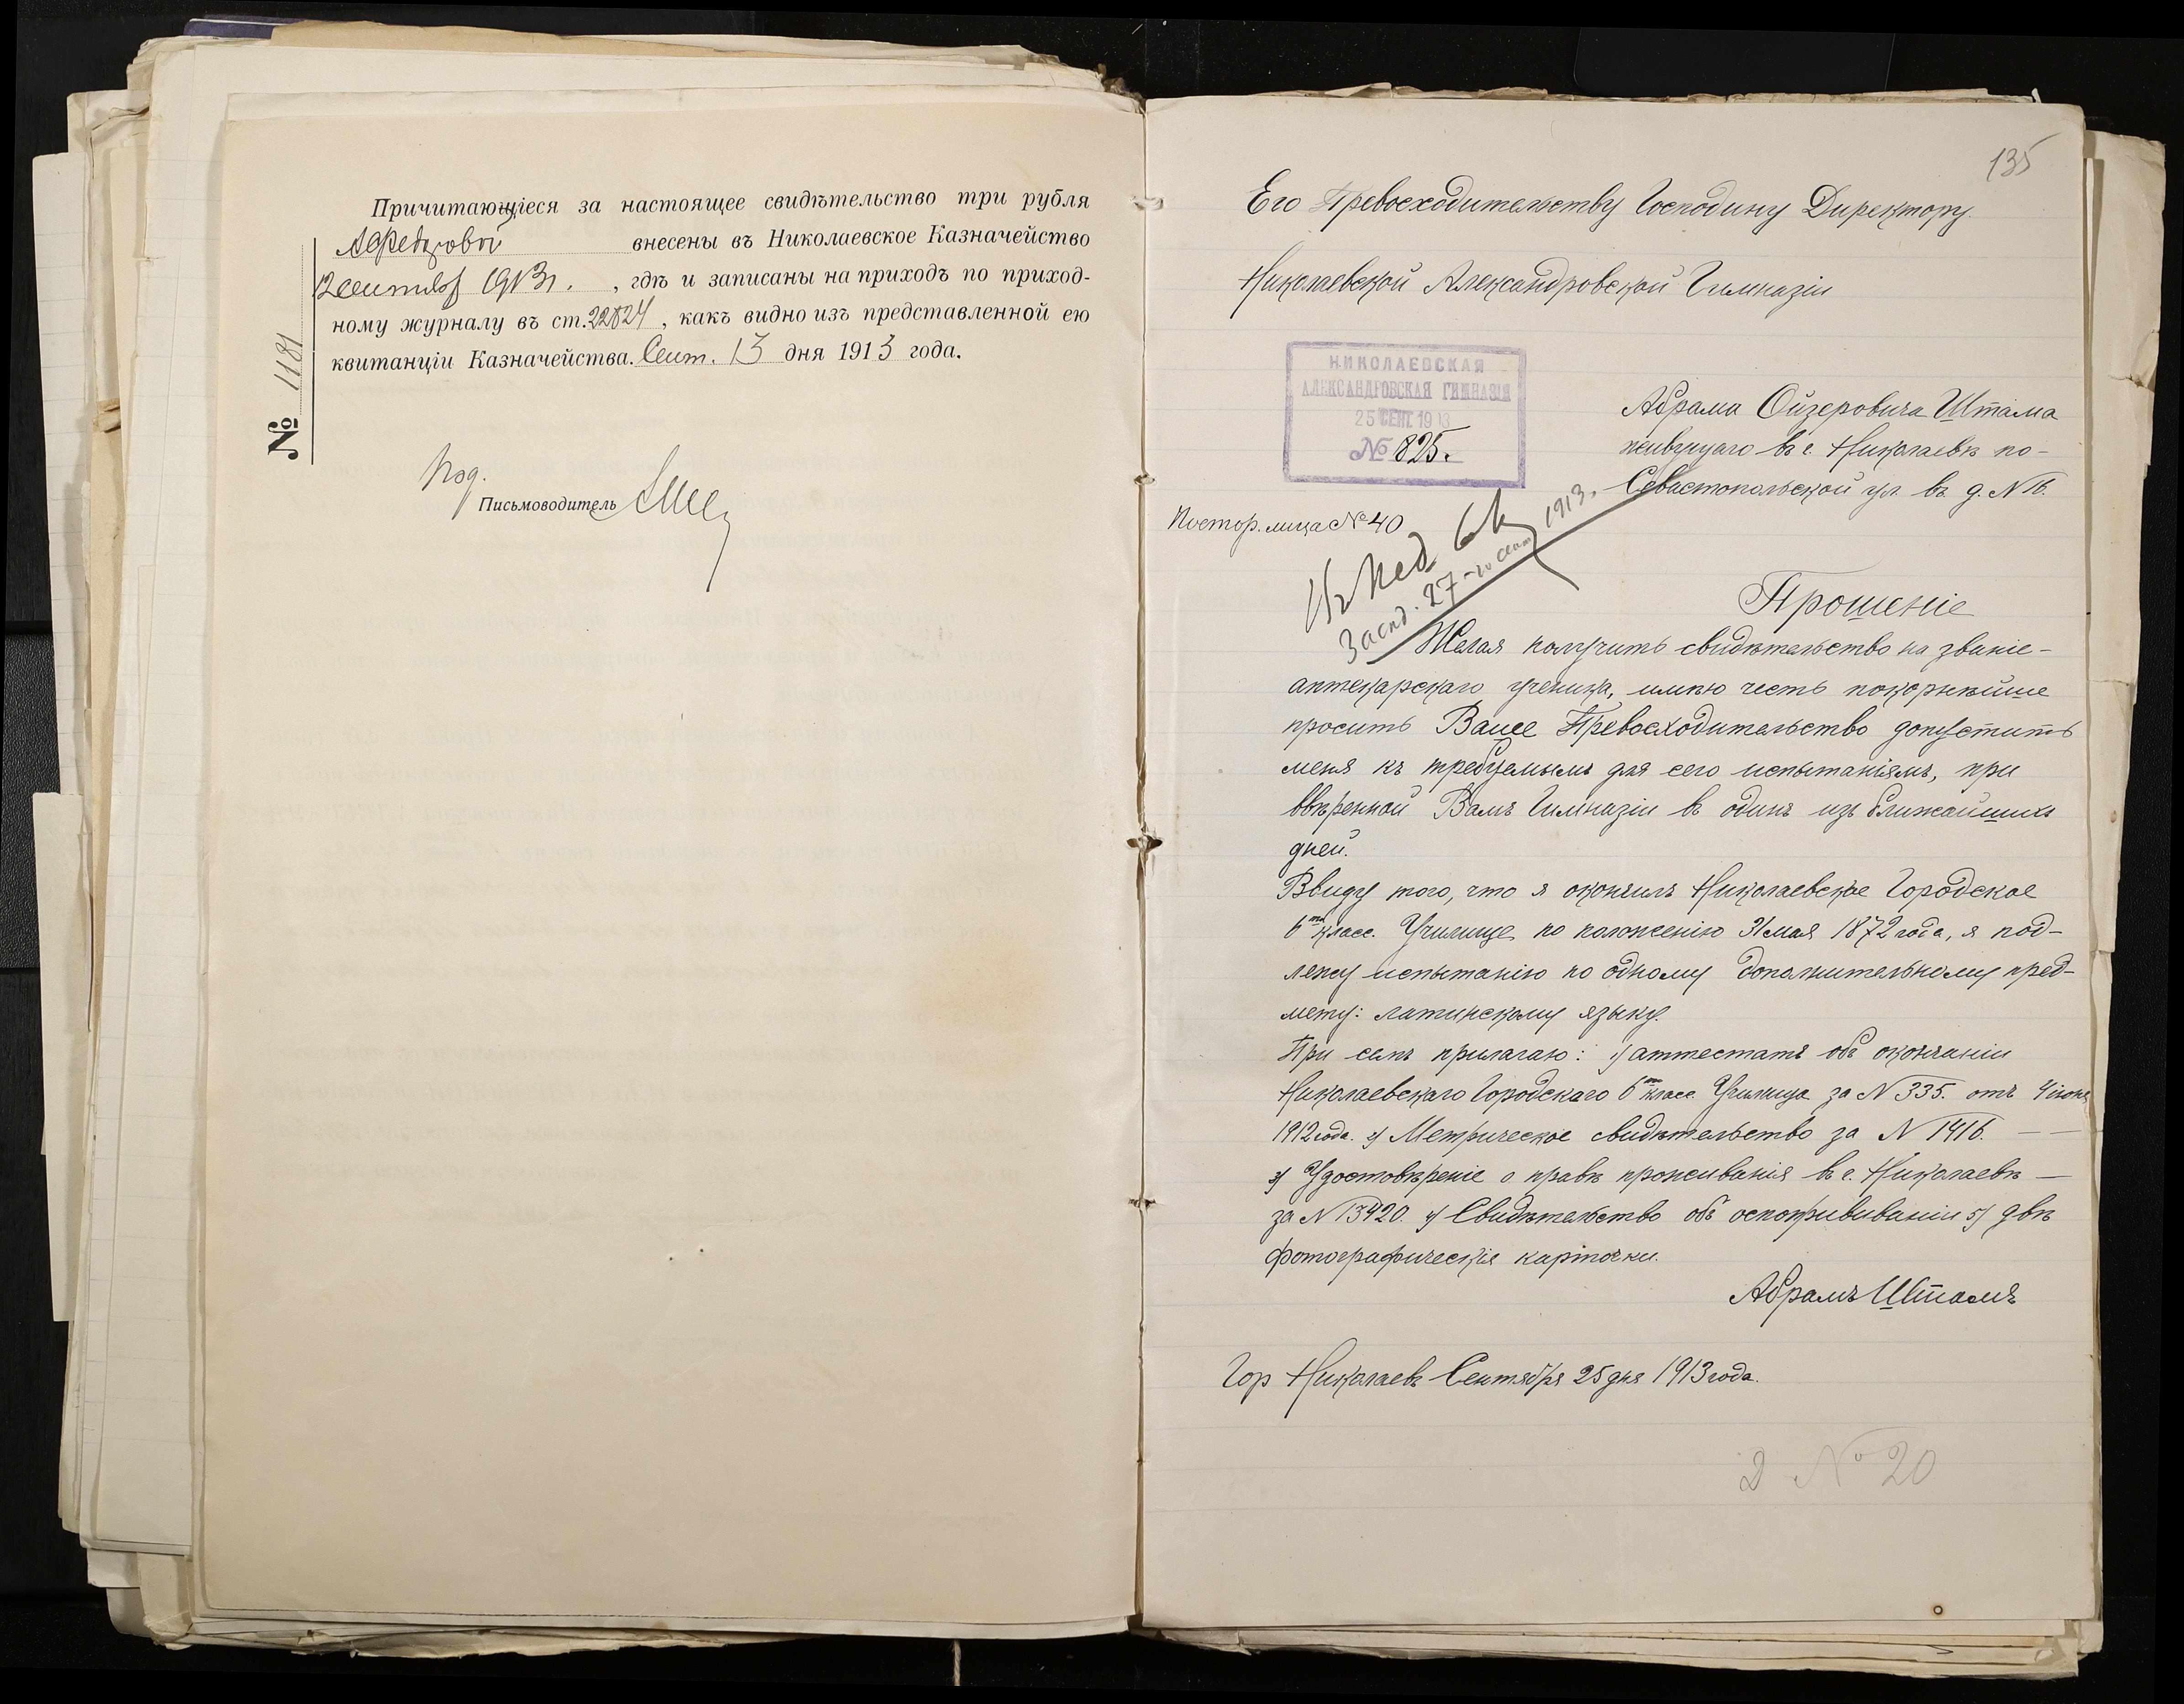 Причитающіеся за настоящее свидѣтельство три рубля
внесены въ Николаевское Казначейство
1913 г. , гдѣ и записаны на приходъ по приход-
ному журналу въ ст. 22824, какъ видно изъ представленной ею
квитанціи Казначейства. Сент. 13 дня 1913 года.
№ 1181
Письмоводитель
135
Его Превосходительству Господину Директору
Николаевской Александровской Гимназіи
НИКОЛАЕВСКАЯ
АЛЕКСАНДРОВСКАЯ ГИМНАЗІЯ
25 СЕНТ. 1913
№ 825.
Абрама Ойзеровича Штама
живущаго въ г. Николаевѣ по-
Севастопольской ул. въ д. №
Постор. лица № 40
Засѣд. 27-го сент. 1913.
Прошеніе
Желая получить свидѣтельство на званіе-
аптекарскаго ученика, имѣю честь покорнѣйше
просить Ваше Превосходительство допустить
меня къ требуемымъ для сего испытаніямъ, при
ввѣренной Вамъ Гимназіи въ одинъ изъ ближайшихъ
дней.
Ввиду того, что я окончилъ Николаевское Городское
6ти класс. Училище по положенію 31 мая 1872 года, я под-
лежу испытанію по одному дополнительному пред-
мету: латинскому языку.
При семъ прилагаю: 1) аттестатъ объ окончаніи
Николаевскаго Городскаго 6ти класс. Училища за N 335. отъ 4 іюня
1912 года. 2) Метрическое свидѣтельство за N 1416. — —
3) Удостовѣреніе о правѣ проживанія въ г. Николаевѣ —
за N 13420. 4) Свидѣтельство объ оспопрививаніи 5) двѣ
фотографическія карточки.
Абрамъ Штамъ
Гор Николаевъ Сентября 25 дня 1913 года.
№ 20